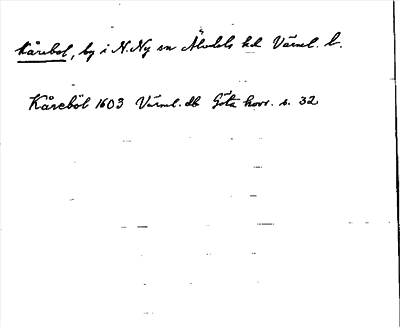 Kårebol, by i N. Ny sn Älvdals hd Värml. l.
Kåreböl 1603 Värml. db Göta hovr. s. 32